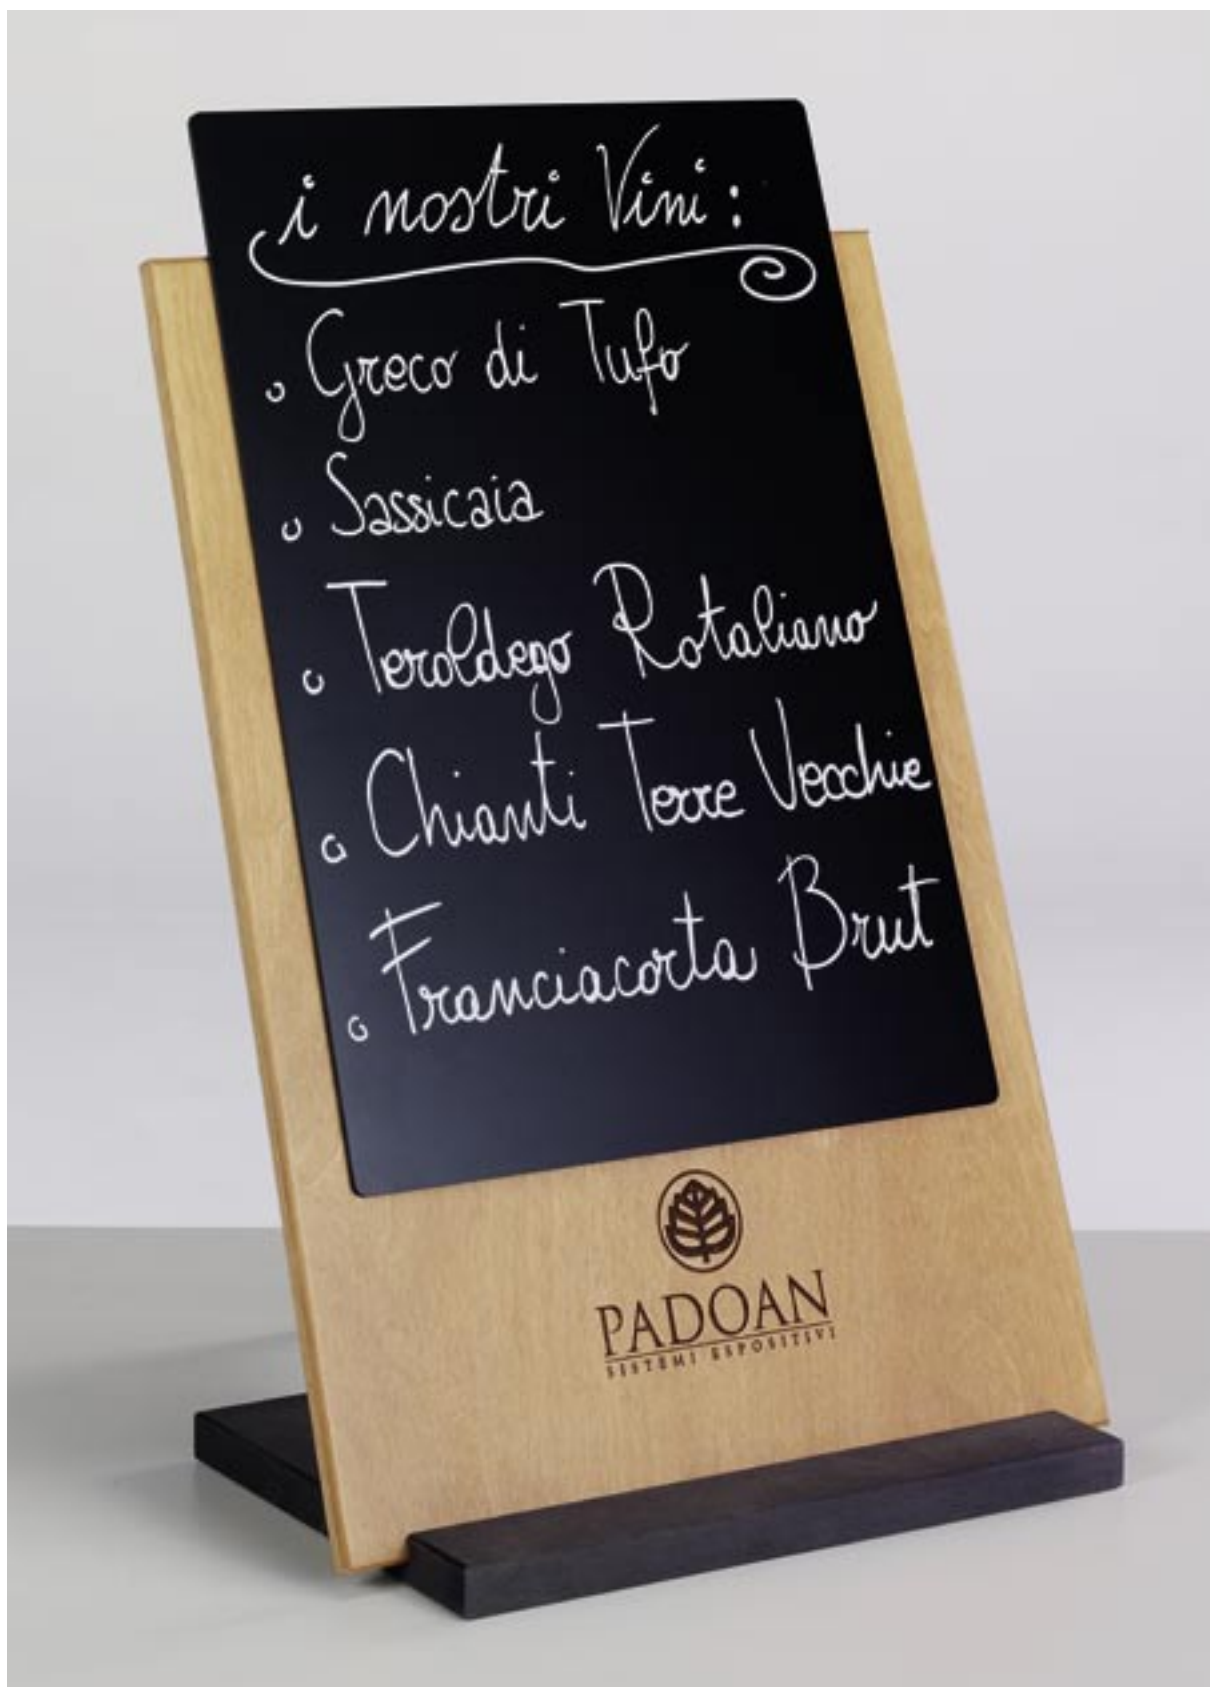 i nostri Vini:
Greco di Tufo
Sassicaia
Teroldego Rotaliano
Chianti Terre Vecchie
Franciacorta Brut
PADOAN
SISTEMI ESPOSITIVI